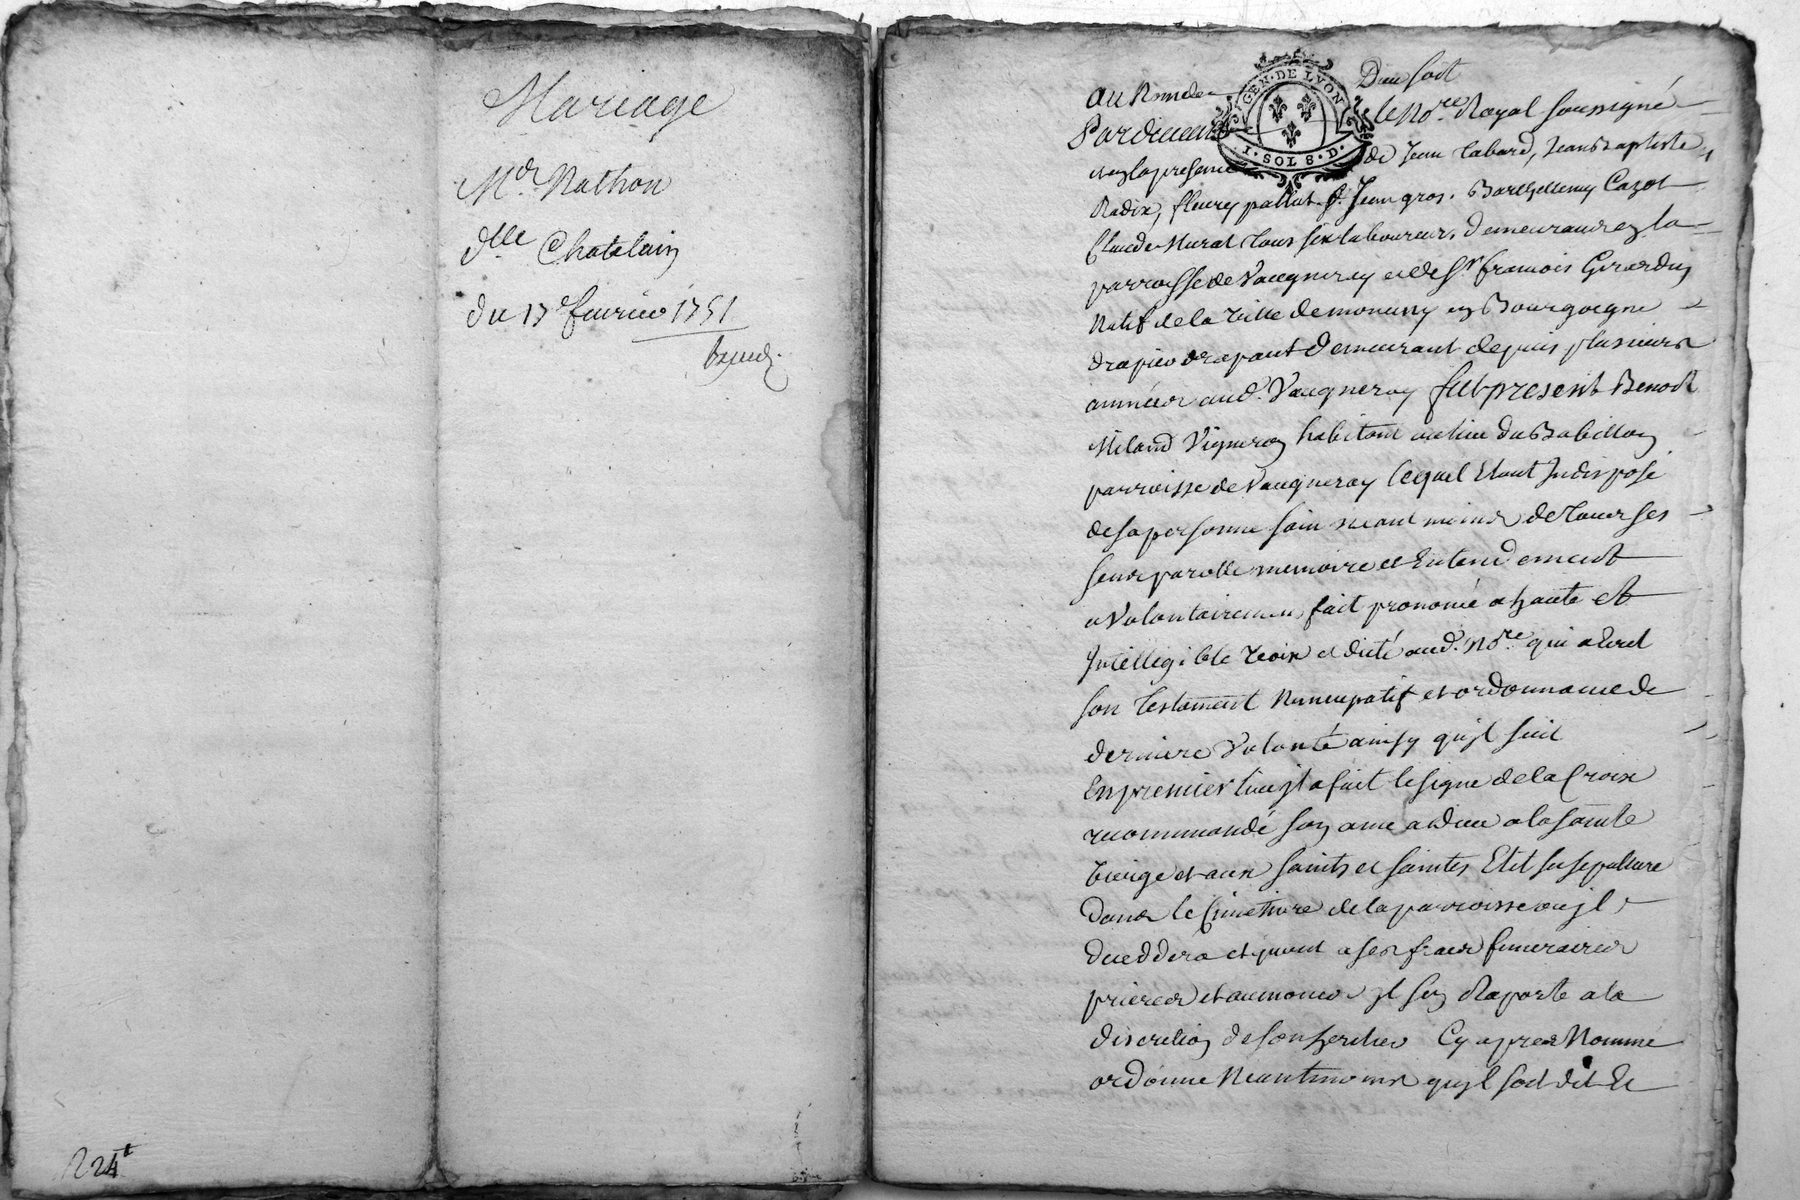 Mariage
Mr. Nathon
dlle Chatelain
du 17e fevrier 1751
Exped.
R 24t
GEN. DE LYON
1. SOL 8. D.
au Nom de Dieu soit
Pardevant le Nore. Royal soussigné
en la presence de Jean Tabard, Jean Baptiste
Radix, fleury pallut Sr. Jean gros. Barthellemy Cazot
Claude Murat tous six laboureurs, demeurant en la
parroisse de Vaugneray et de Sr. francois Girardin
Natif de la Ville de moncuny en Bourgogne
drapier drapant demeurant depuis plusieurs
années aud. Vaugneray fut present Benoit
Milard Vigneron habitant au lieu du Babillon
parroisse de Vaugneray lequel Etant Indisposé
de sa personne sain neant moins de tous ses
sens parolle memoire et Entendement
a Volontairement fait prononcé a haute et
Intelligible Voix et dicté aud. Nore. qui a Ecrit
son testament Nuncupatif et ordonnance de
derniere Volonté ainsy qujl suit
En premier lieu jl a fait le signe de la Croix
recommandé son ame a Dieu a la sainte
Vierge et aux saints et saintes Elit sa sepulture
dans le Cimetiere de la parroisse ou jl
deceddera et quant a ses frais funeraires
prieres et aumones jl s'en Raporte a la
discretion de son heritier Cy apres Nommé
ordonne Neantmoins qujl soit dit Et